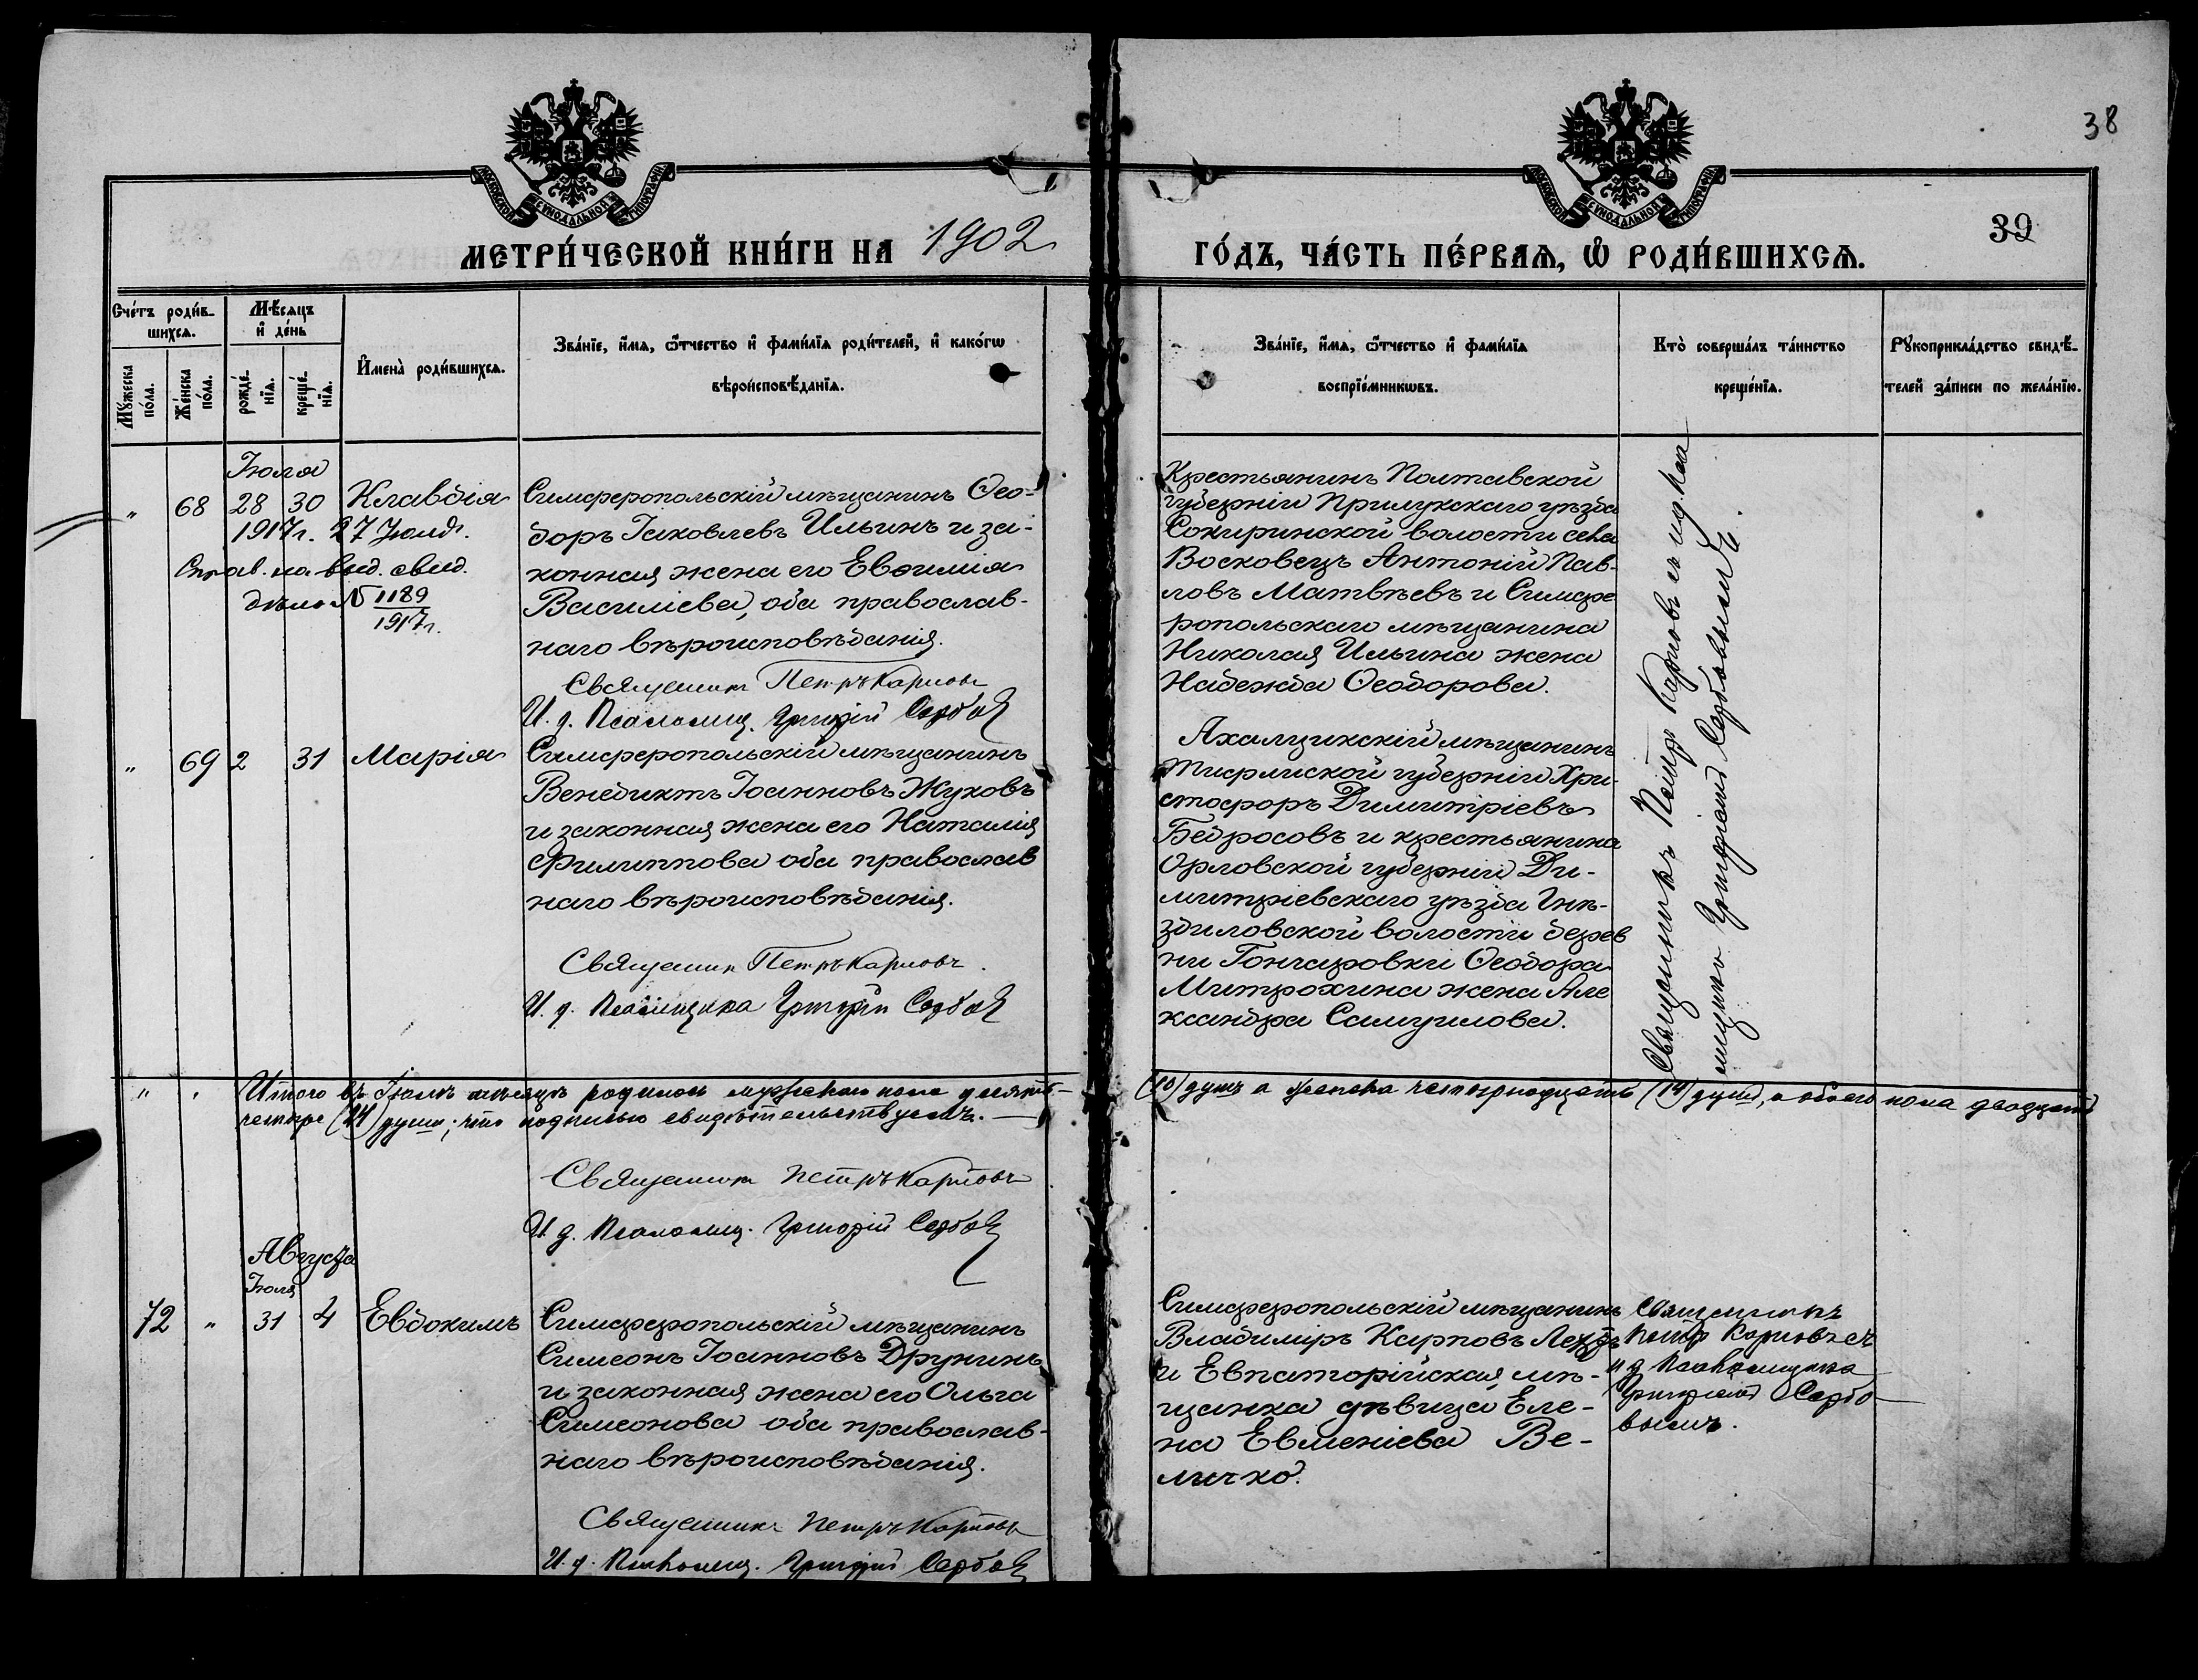 38
МОСКОВСКОЙ СѴНОДАЛЬНОЙ ТИПОГРАФІИ
МОСКОВСКОЙ СѴНОДАЛЬНОЙ ТИПОГРАФІИ
39
МЕТРИ́ЧЕСКОЙ КНИ́ГИ НА 1902
ГО́ДЪ, ЧА́СТЬ ПЕ́РВАѦ, Ѡ҆ РОДИ́ВШИХСѦ.
Сче́тъ роди́в-
шихсѧ.
Мꙋ́жеска
по́ла.
Же́нска
по́ла.
Мѣ́сѧцъ
и҆ де́нь
рожде́-
нїѧ.
креще́-
нїѧ.
И҆мена̀ роди́вшихсѧ.
Зва́нїе, и҆́мѧ, ѻ҆́тчество и҆ фами́лїѧ роди́телей, и҆ како́гѡ
вѣроисповѣ́данїѧ.
Зва́нїе, и҆́мѧ, ѻ҆́тчество и҆ фами́лїѧ
воспрїе́мникѡвъ.
Кто̀ соверша́лъ та́инство
креще́нїѧ.
Рꙋкоприкла́дство свидѣ́-
телей за́писи по жела́нїю.
Іюля
„ 68 28 30 Клавдія
1917 г. 27 Іюля.
Справ. на выд. свид.
дѣло № 1189
1917 г.
Симферопольскій мѣщанинъ Ѳео-
доръ Іаковлевъ Ильинъ и за-
конная жена его Евѳимія
Василіева, оба православ-
наго вѣроисповѣданія.
Священникъ Петръ Карповъ
И. д. Псаломщ. Григорій Сербовъ
Крестьянинъ Полтавской
губерніи Прилукскаго уѣзда
Сокиринской волости села
Восковецъ Антоній Пав-
ловъ Матвѣевъ и Симфе
ропольскаго мѣщанина
Николая Ильина жена
Надежда Ѳеодорова.
Священникъ Петръ Карповъ съ и. д. пса
ломщика Григоріемъ Сербовымъ.
„ 69 2 31 Марія
Симферопольскій мѣщанинъ
Венедиктъ Іоанновъ Жуковъ
и законная жена его Наталія
Филиппова оба православ
наго вѣроисповѣданія.
Священник Петръ Карповъ.
И. д. Псаломщика Григорій Сербовъ
Ахалцикскій мѣщанинъ
Тифлиской губерніи Хри-
стофоръ Димитріевъ
Бедросовъ и крестьянина
Орловской губерніи Ди-
митріевскаго уѣзда Гнѣ-
здиловской волости дерев
ни Гончаровки Ѳеодора
Митрохина жена Але
ксандра Самуилова.
„ „ Итого въ Іюлѣ мѣсяцѣ родилось мужескаго пола десять (10) душъ а женска четырнадцать (14) душъ, а обоего пола двадцать
четыре (24) души; что подписью свидѣтельствуемъ.
Священникъ Петръ Карповъ
И. д. Псаломщ. Григорій Сербовъ
Августа
Іюля
72 „ 31 4 Евдокимъ
Симферопольскій мѣщанинъ
Симеонъ Іоанновъ Друнинъ
и законная жена его Ольга
Симеонова оба православ-
наго вѣроисповѣданія.
Священникъ Петръ Карповъ
И. д. Псаломщ. Григорій Сербовъ
Симферопольскій мѣщанинъ
Владиміръ Карповъ
и Евпаторійская мѣ-
щанка дѣвица Еле-
на Евменіева Ве-
личко.
Священникъ
Петръ Карповъ съ
и д Псаломщика
Григоріемъ Сербо-
вымъ.